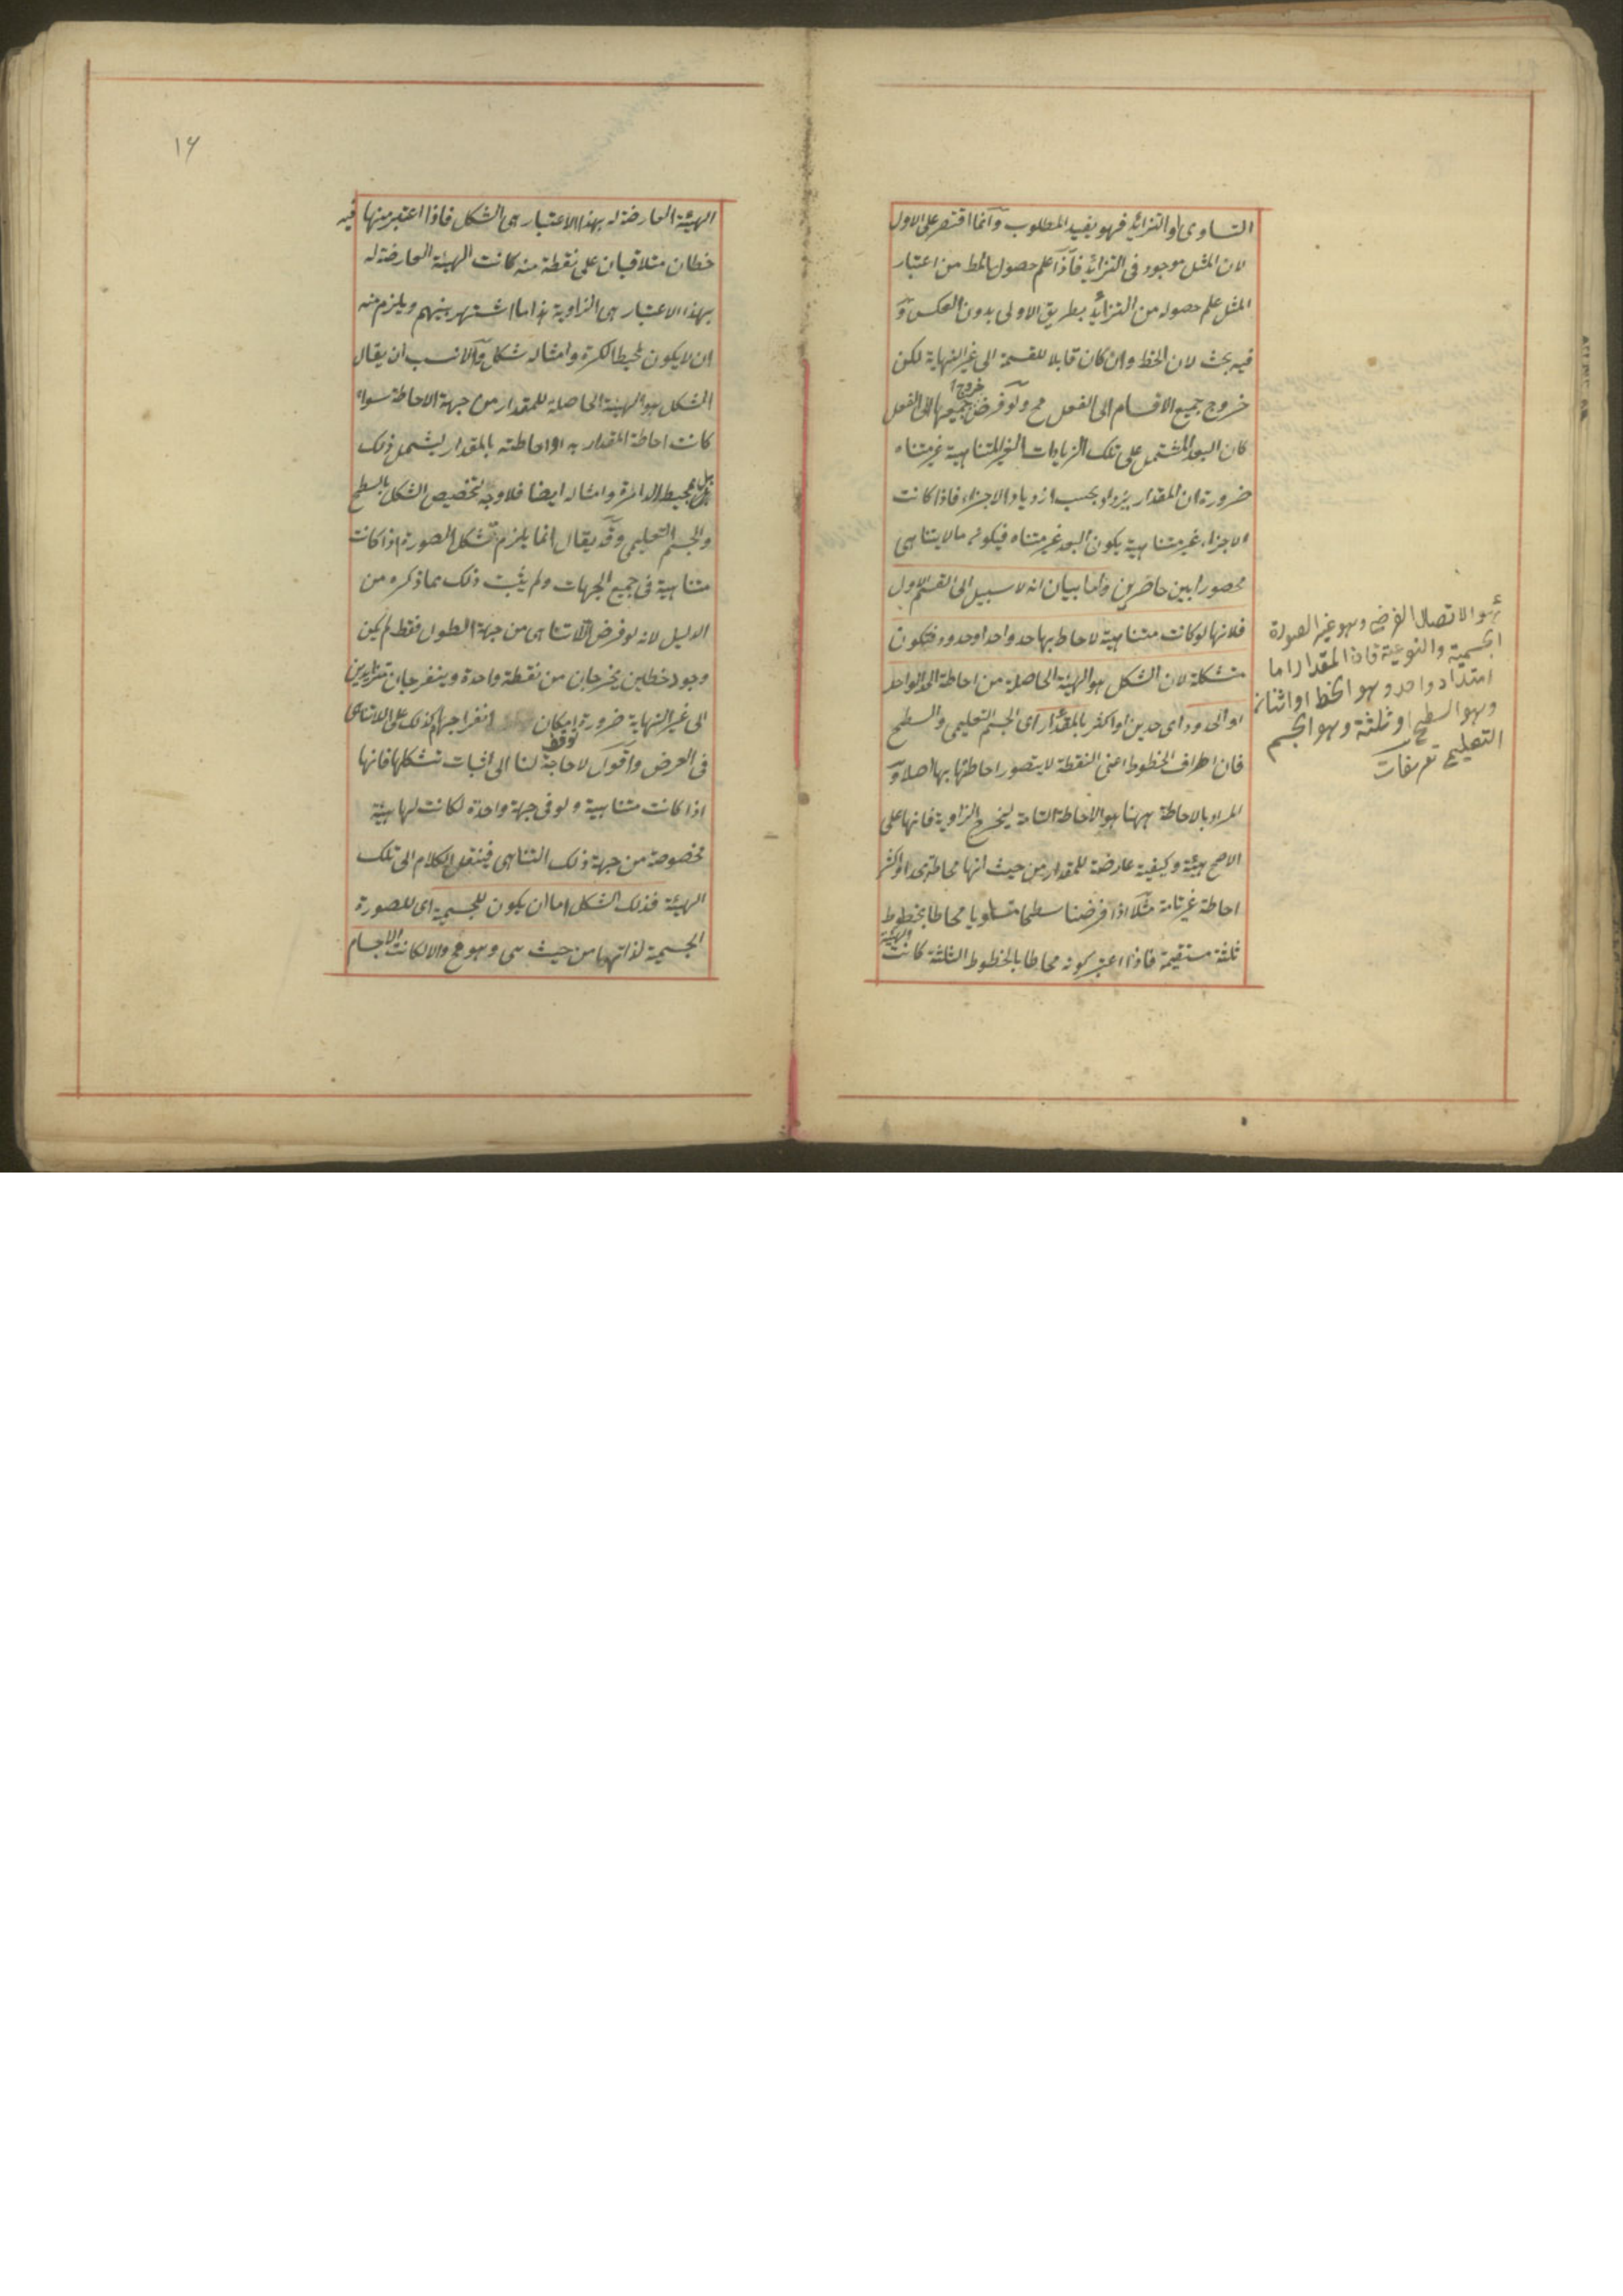 التساوى او التزايد فهو يفيد المطلوب وانما اقتصر على الاول
لان المثل موجود فى التزايد فاذا علم حصول المط من اعتبار
المثل علم حصوله من التزايد بطريق الاولى بدون العكس و
فيه بحث لان الخط وان كان قابلا للقسمة الى غير النهاية لكن
خروج جميع الاقسام الى الفعل مح ولو فرض خروج جميعها الى الفعل
كان البعد المشتمل على تلك الزيادات الغير المتناهية غير متناه
ضرورة ان المقدار يزداد بحسب ازدياد الاجزاء فاذا كانت
الاجزاء غير متناهية يكون البعد غير متناه فيكون ما لا يتناهى
محصورا بين حاصرين واما بيان انه لا سبيل الى القسم الاول
فلانها لو كانت متناهية لاحاط بها حد واحد او حدود فتكون
متشكلة لان الشكل هو الهيئة الحاصلة من احاطة الحد الواحد
او الحدود اى حدين او اكثر بالمقدار اى الجسم التعليمى والسطح
فان اطراف الخطوط اعنى النقطة لا يتصور احاطتها بها اصلا و
المراد بالاحاطة ههنا هو الاحاطة التامة ليخرج الزاوية فانها على
الاصح هيئة وكيفية عارضة للمقدار من حيث انها محاطة بحد او اكثر
احاطة غير تامة مثلا اذا فرضنا سطحا مستويا محاطا بخطوط
ثلثة مستقيمة فاذا اعتبر كونه محاطا بالخطوط الثلثة كانت الهيئة
هو الاتصال العرضى وهو غير الصورة
الجسمية والنوعية فان المقدار اما
امتداد واحد وهو الخط او اثنان
وهو السطح او ثلثة وهو الجسم
التعليمى تعريفات
١٦
الهيئة العارضة له بهذا الاعتبار هى الشكل فاذا اعتبر منها فيه
خطان متلاقيان على نقطة منه كانت الهيئة العارضة له
بهذا الاعتبار هى الزاوية هذا ما اشتهر بينهم ويلزم منه
ان لا يكون لمحيط الكرة وامثاله شكل والانسب ان يقال
الشكل هو الهيئة الحاصلة للمقدار من جهة الاحاطة سواء
كانت احاطة المقدار به او احاطته بالمقدار ليشمل ذلك
بل محيط الدائرة وامثاله ايضا فلا وجه لتخصيص الشكل بالسطح
والجسم التعليمى وقد يقال انما يلزم تشكل الصورة اذا كانت
متناهية فى جميع الجهات ولم يثبت ذلك مما ذكره من
الدليل لانه لو فرض اللاتناهى من جهة الطول فقط لم يكن
وجود خطين يخرجان من نقطة واحدة وينفرجان متزايدين
الى غير النهاية ضرورة امكان انفراجهما كذلك على اللاتناهى
فى العرض فقط واقول لا حاجة لنا الى اثبات تشكلها فانها
اذا كانت متناهية ولو فى جهة واحدة لكانت لها هيئة
مخصوصة من جهة ذلك التناهى فينقل الكلام الى تلك
الهيئة فذلك الشكل اما ان يكون للجسمية اى للصورة
الجسمية لذاتها من حيث هى وهو مح والا لكانت الاجسام